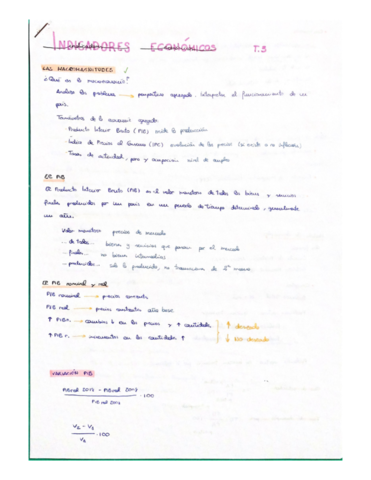 INDICADORES ECONÓMICOS T.3
LAS MACROMAGNITUDES
¿Qué es la macroeconomía?
Analiza los problemas → perspectiva agregada. Interpreta el funcionamiento de un
país.
Producto Interior Bruto (PIB) mide la producción
Índice de Precios al Consumo (IPC) evolución de los precios
Tasas de actividad, paro y ocupación nivel de empleo
El PIB
El Producto Interior Bruto (PIB) es el valor monetario de todos los bienes y servicios
finales producidos por un país en un período de tiempo determinado, generalmente
un año.
Valor monetario precios de mercado
... de todos... bienes y servicios que pasan por el mercado
... finales... no bienes intermedios
... producidos... sólo lo producido, no transacciones de 2ª mano
El PIB nominal y real
PIB nominal → precios corrientes
PIB real → precios constantes año base
↑ PIB n. → cambios en los precios y ↑ cantidades
↑ PIB r. → incrementos en las cantidades ↑
VARIACIÓN PIB
· 100
V2 - V1
V1 · 100